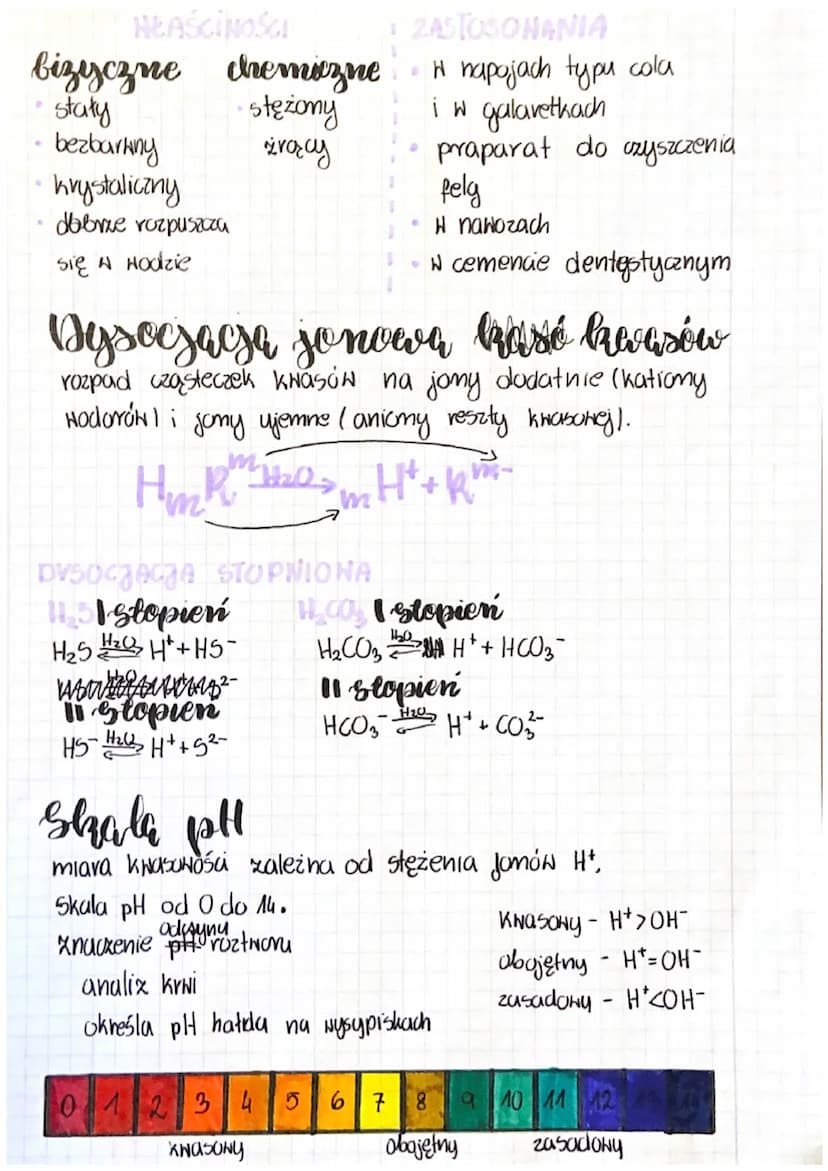 WŁAŚCIWOŚCI
fizyczne chemiczne
• stały • stężony
• bezbarwny żrący
• krystaliczny
• dobrze rozpuszcza
się w wodzie
ZASTOSOWANIA
• w napojach typu cola
i w galaretkach
• praparat do czyszczenia
felg
• w nawozach
• w cemencie dentęstycznym
Dysocjacja jonowa kwasów
rozpad cząsteczek kwasów na jony dodatnie (kationy
wodorów) i jony ujemne (aniony reszty kwasowej).
HₘRᵐ H₂O→ mH⁺ + Rᵐ⁻
DYSOCJACJA STOPNIOWA
H₂S I stopień
H₂S H₂O⇄ H⁺ + HS⁻
II stopień
HS⁻ H₂O⇄ H⁺ + S²⁻
H₂CO₃ I stopień
H₂CO₃ H₂O⇄ H⁺ + HCO₃⁻
II stopień
HCO₃⁻ H₂O⇄ H⁺ + CO₃²⁻
Skala pH
miara kwasowości zależna od stężenia jonów H⁺.
Skala pH od 0 do 14.
znaczenie odczynu roztworu
analiz krwi
określa pH hałda na wysypiskach
kwasowy - H⁺>OH⁻
obojętny - H⁺=OH⁻
zasadowy - H⁺<OH⁻
0 1 2 3 4 5 6 7 8 9 10 11 12 13 14
kwasowy obojętny zasadowy